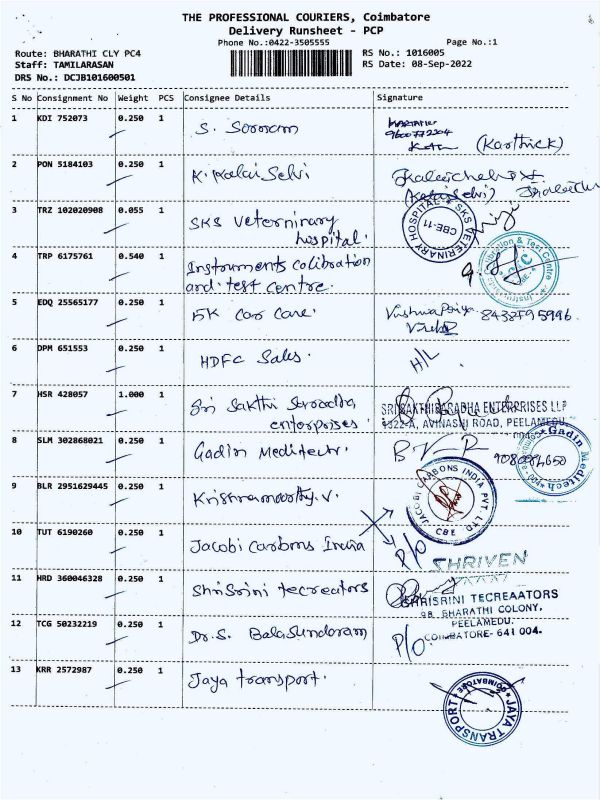 THE PROFESSIONAL COURIERS, Coimbatore
Delivery Runsheet - PCP
Phone No.:0422-3505555
Page No.:1
Route: BHARATHI CLY PC4
RS No.: 1016005
Staff: TAMILARASAN
RS Date: 08-Sep-2022
DRS No.: DCJB101600501
S No Consignment No Weight PCS Consignee Details Signature
1 KDI 752073 0.250 1 S.
(Karthick)
2 PON 5184103 0.250 1 K. Kalai Selvi
(Kalai Selvi)
3 TRZ 102020908 0.055 1 SKS Veterninary
hospital.
SKS VETERINARY HOSPITAL
CBE-11
4 TRP 6175761 0.540 1 Instruments colibration
and test centre.
5 EDQ 25565177 0.250 1 car care.
Vishwapriya
6 DPM 651553 0.250 1 HDFC Sales.
H/L
7 HSR 428057 1.000 1 Sri Sakthi Saradha
enterprises
SRI SAKTHI SARADHA ENTERPRISES LLP
AVINASHI ROAD, PEELAMEDU,
8 SLM 302868021 0.250 1 Gadin Meditech.
Gadin Meditech
9 BLR 2951629445 0.250 1 Krishnamoorthy. V.
JACOBI CARBONS INDIA PVT. LTD
CBE
10 TUT 6190260 0.250 1 Jacobi Carbons India
P/O
SHRIVEN
11 HRD 360046328 0.250 1 ShriSrini tecreators
SHRISRINI TECREAATORS
98, BHARATHI COLONY,
PEELAMEDU,
COIMBATORE- 641 004.
12 TCG 50232219 0.250 1 Dr. S. Balasundaram
P/O
13 KRR 2572987 0.250 1 Jaya transport.
JAYA TRANSPORT
COIMBATORE